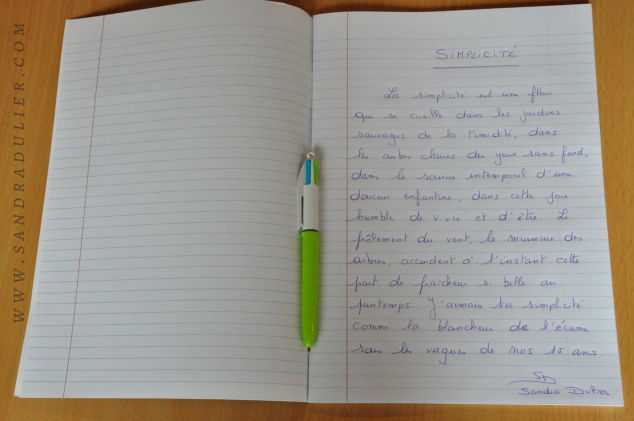 WWW.SANDRADULIER.COM
SIMPLICITÉ
La simplicité est une fleur
qui se cueille dans les jardins
sauvages de la timidité, dans
les aubes claires des yeux sans fard,
dans le sourire intemporel d'une
douceur enfantine, dans cette joie
humble de vivre et d'être. Le
frôlement du vent, le murmure des
arbres, accordent à l'instant cette
part de fraîcheur si belle au
printemps. J'aimais ta simplicité
comme la blancheur de l'écume
sous les vagues de nos 15 ans.
SD
Sandra Dulier